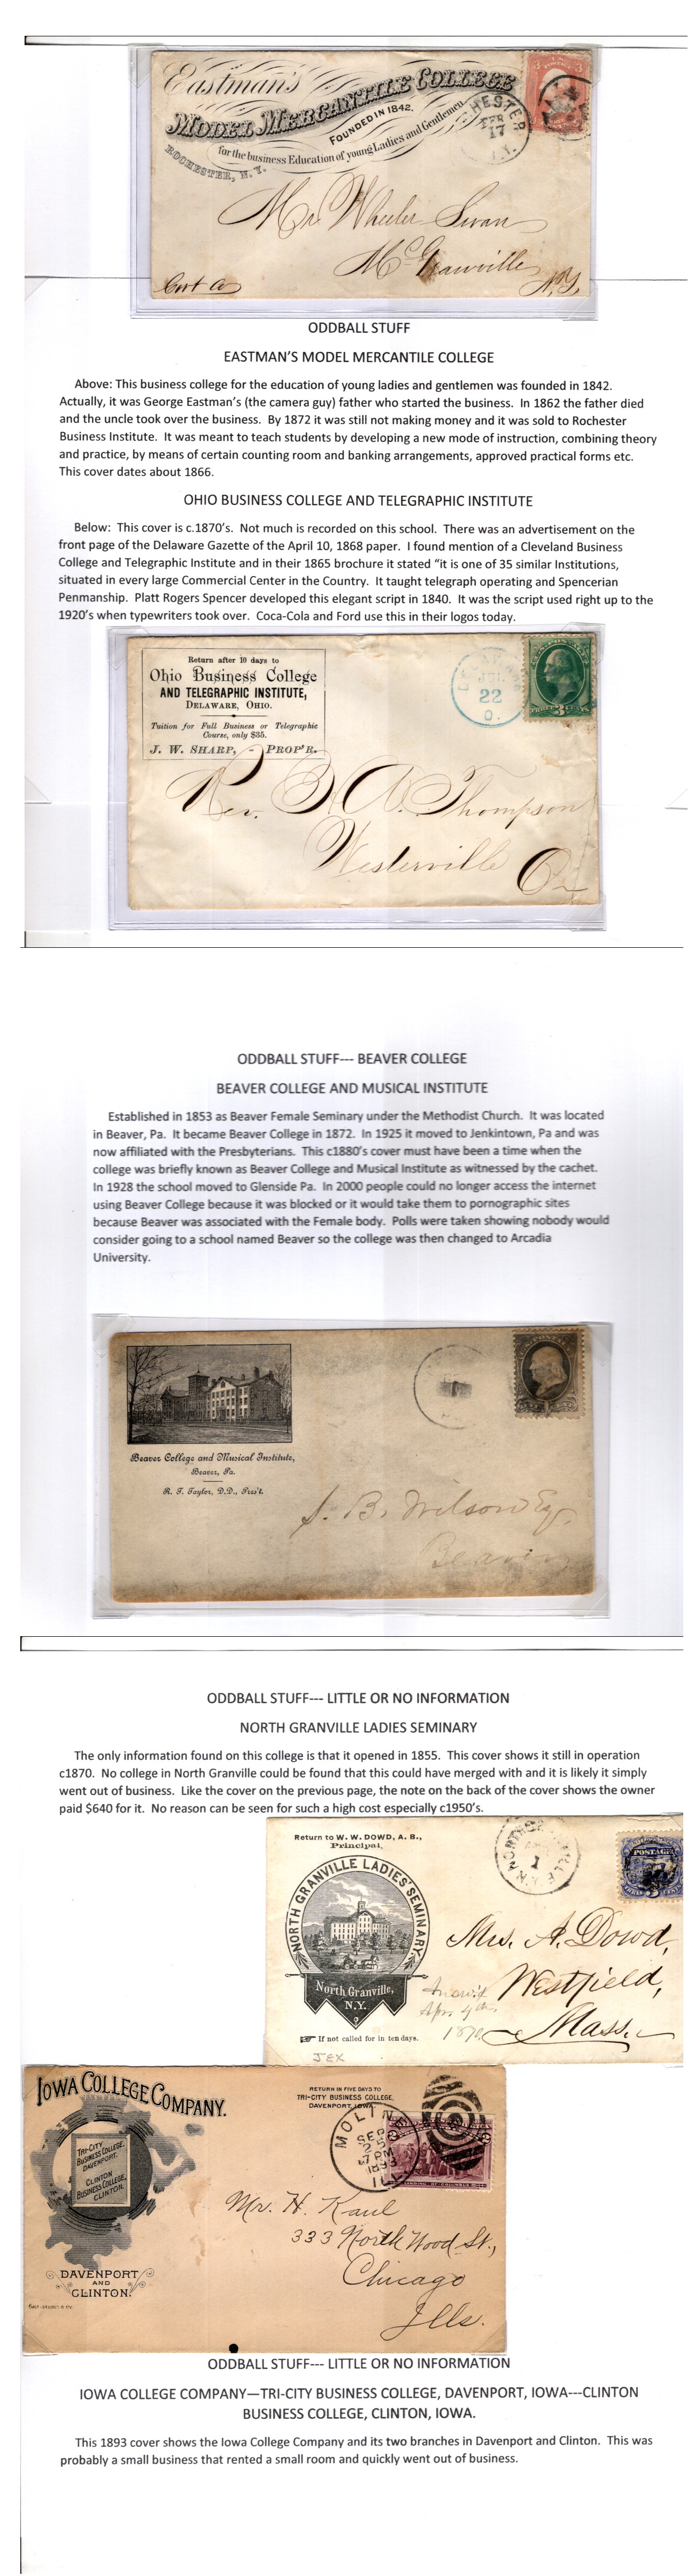 Eastman's
MODEL MERCANTILE COLLEGE
FOUNDED IN 1842.
for the business Education of young Ladies and Gentlemen
ROCHESTER, N.Y.
HESTER
FEB
17
N.Y.
Mr. Wheeler Swan
McGranville
N.Y.
ODDBALL STUFF
EASTMAN'S MODEL MERCANTILE COLLEGE
Above: This business college for the education of young ladies and gentlemen was founded in 1842.
Actually, it was George Eastman's (the camera guy) father who started the business. In 1862 the father died
and the uncle took over the business. By 1872 it was still not making money and it was sold to Rochester
Business Institute. It was meant to teach students by developing a new mode of instruction, combining theory
and practice, by means of certain counting room and banking arrangements, approved practical forms etc.
This cover dates about 1866.
OHIO BUSINESS COLLEGE AND TELEGRAPHIC INSTITUTE
Below: This cover is c.1870's. Not much is recorded on this school. There was an advertisement on the
front page of the Delaware Gazette of the April 10, 1868 paper. I found mention of a Cleveland Business
College and Telegraphic Institute and in their 1865 brochure it stated "it is one of 35 similar Institutions,
situated in every large Commercial Center in the Country. It taught telegraph operating and Spencerian
Penmanship. Platt Rogers Spencer developed this elegant script in 1840. It was the script used right up to the
1920's when typewriters took over. Coca-Cola and Ford use this in their logos today.
Return after 10 days to
Ohio Business College
AND TELEGRAPHIC INSTITUTE,
DELAWARE, OHIO.
Tuition for Full Business or Telegraphic
Course, only $35.
J. W. SHARP, - PROP'R.
22
O.
THREE CENTS
Rev. A. Thompson
Westerville
O
ODDBALL STUFF--- BEAVER COLLEGE
BEAVER COLLEGE AND MUSICAL INSTITUTE
Established in 1853 as Beaver Female Seminary under the Methodist Church. It was located
in Beaver, Pa. It became Beaver College in 1872. In 1925 it moved to Jenkintown, Pa and was
now affiliated with the Presbyterians. This c1880's cover must have been a time when the
college was briefly known as Beaver College and Musical Institute as witnessed by the cachet.
In 1928 the school moved to Glenside Pa. In 2000 people could no longer access the internet
using Beaver College because it was blocked or it would take them to pornographic sites
because Beaver was associated with the Female body. Polls were taken showing nobody would
consider going to a school named Beaver so the college was then changed to Arcadia
University.
Beaver College and Musical Institute,
Beaver, Pa.
R. T. Taylor, D.D., Pres't.
S. B. Wilson Esq.
Beaver
ODDBALL STUFF--- LITTLE OR NO INFORMATION
NORTH GRANVILLE LADIES SEMINARY
The only information found on this college is that it opened in 1855. This cover shows it still in operation
c1870. No college in North Granville could be found that this could have merged with and it is likely it simply
went out of business. Like the cover on the previous page, the note on the back of the cover shows the owner
paid $640 for it. No reason can be seen for such a high cost especially c1950's.
Return to W. W. DOWD, A. B.,
Principal,
NORTH GRANVILLE LADIES' SEMINARY.
North Granville,
N.Y.
If not called for in ten days.
POSTAGE
Mrs. A. Dowd,
Westfield,
Mass.
Answ'd
Apr. 4th
1870
JEX
IOWA COLLEGE COMPANY.
TRI-CITY
BUSINESS COLLEGE,
DAVENPORT.
CLINTON
BUSINESS COLLEGE,
CLINTON.
DAVENPORT
AND
CLINTON.
RETURN IN FIVE DAYS TO
TRI-CITY BUSINESS COLLEGE,
DAVENPORT, IOWA.
MOLINE
SEP
25
7 PM
1893
ILL.
Mr. H. Kaul
333 North Wood St.,
Chicago
Ills.
ODDBALL STUFF--- LITTLE OR NO INFORMATION
IOWA COLLEGE COMPANY—TRI-CITY BUSINESS COLLEGE, DAVENPORT, IOWA---CLINTON
BUSINESS COLLEGE, CLINTON, IOWA.
This 1893 cover shows the Iowa College Company and its two branches in Davenport and Clinton. This was
probably a small business that rented a small room and quickly went out of business.